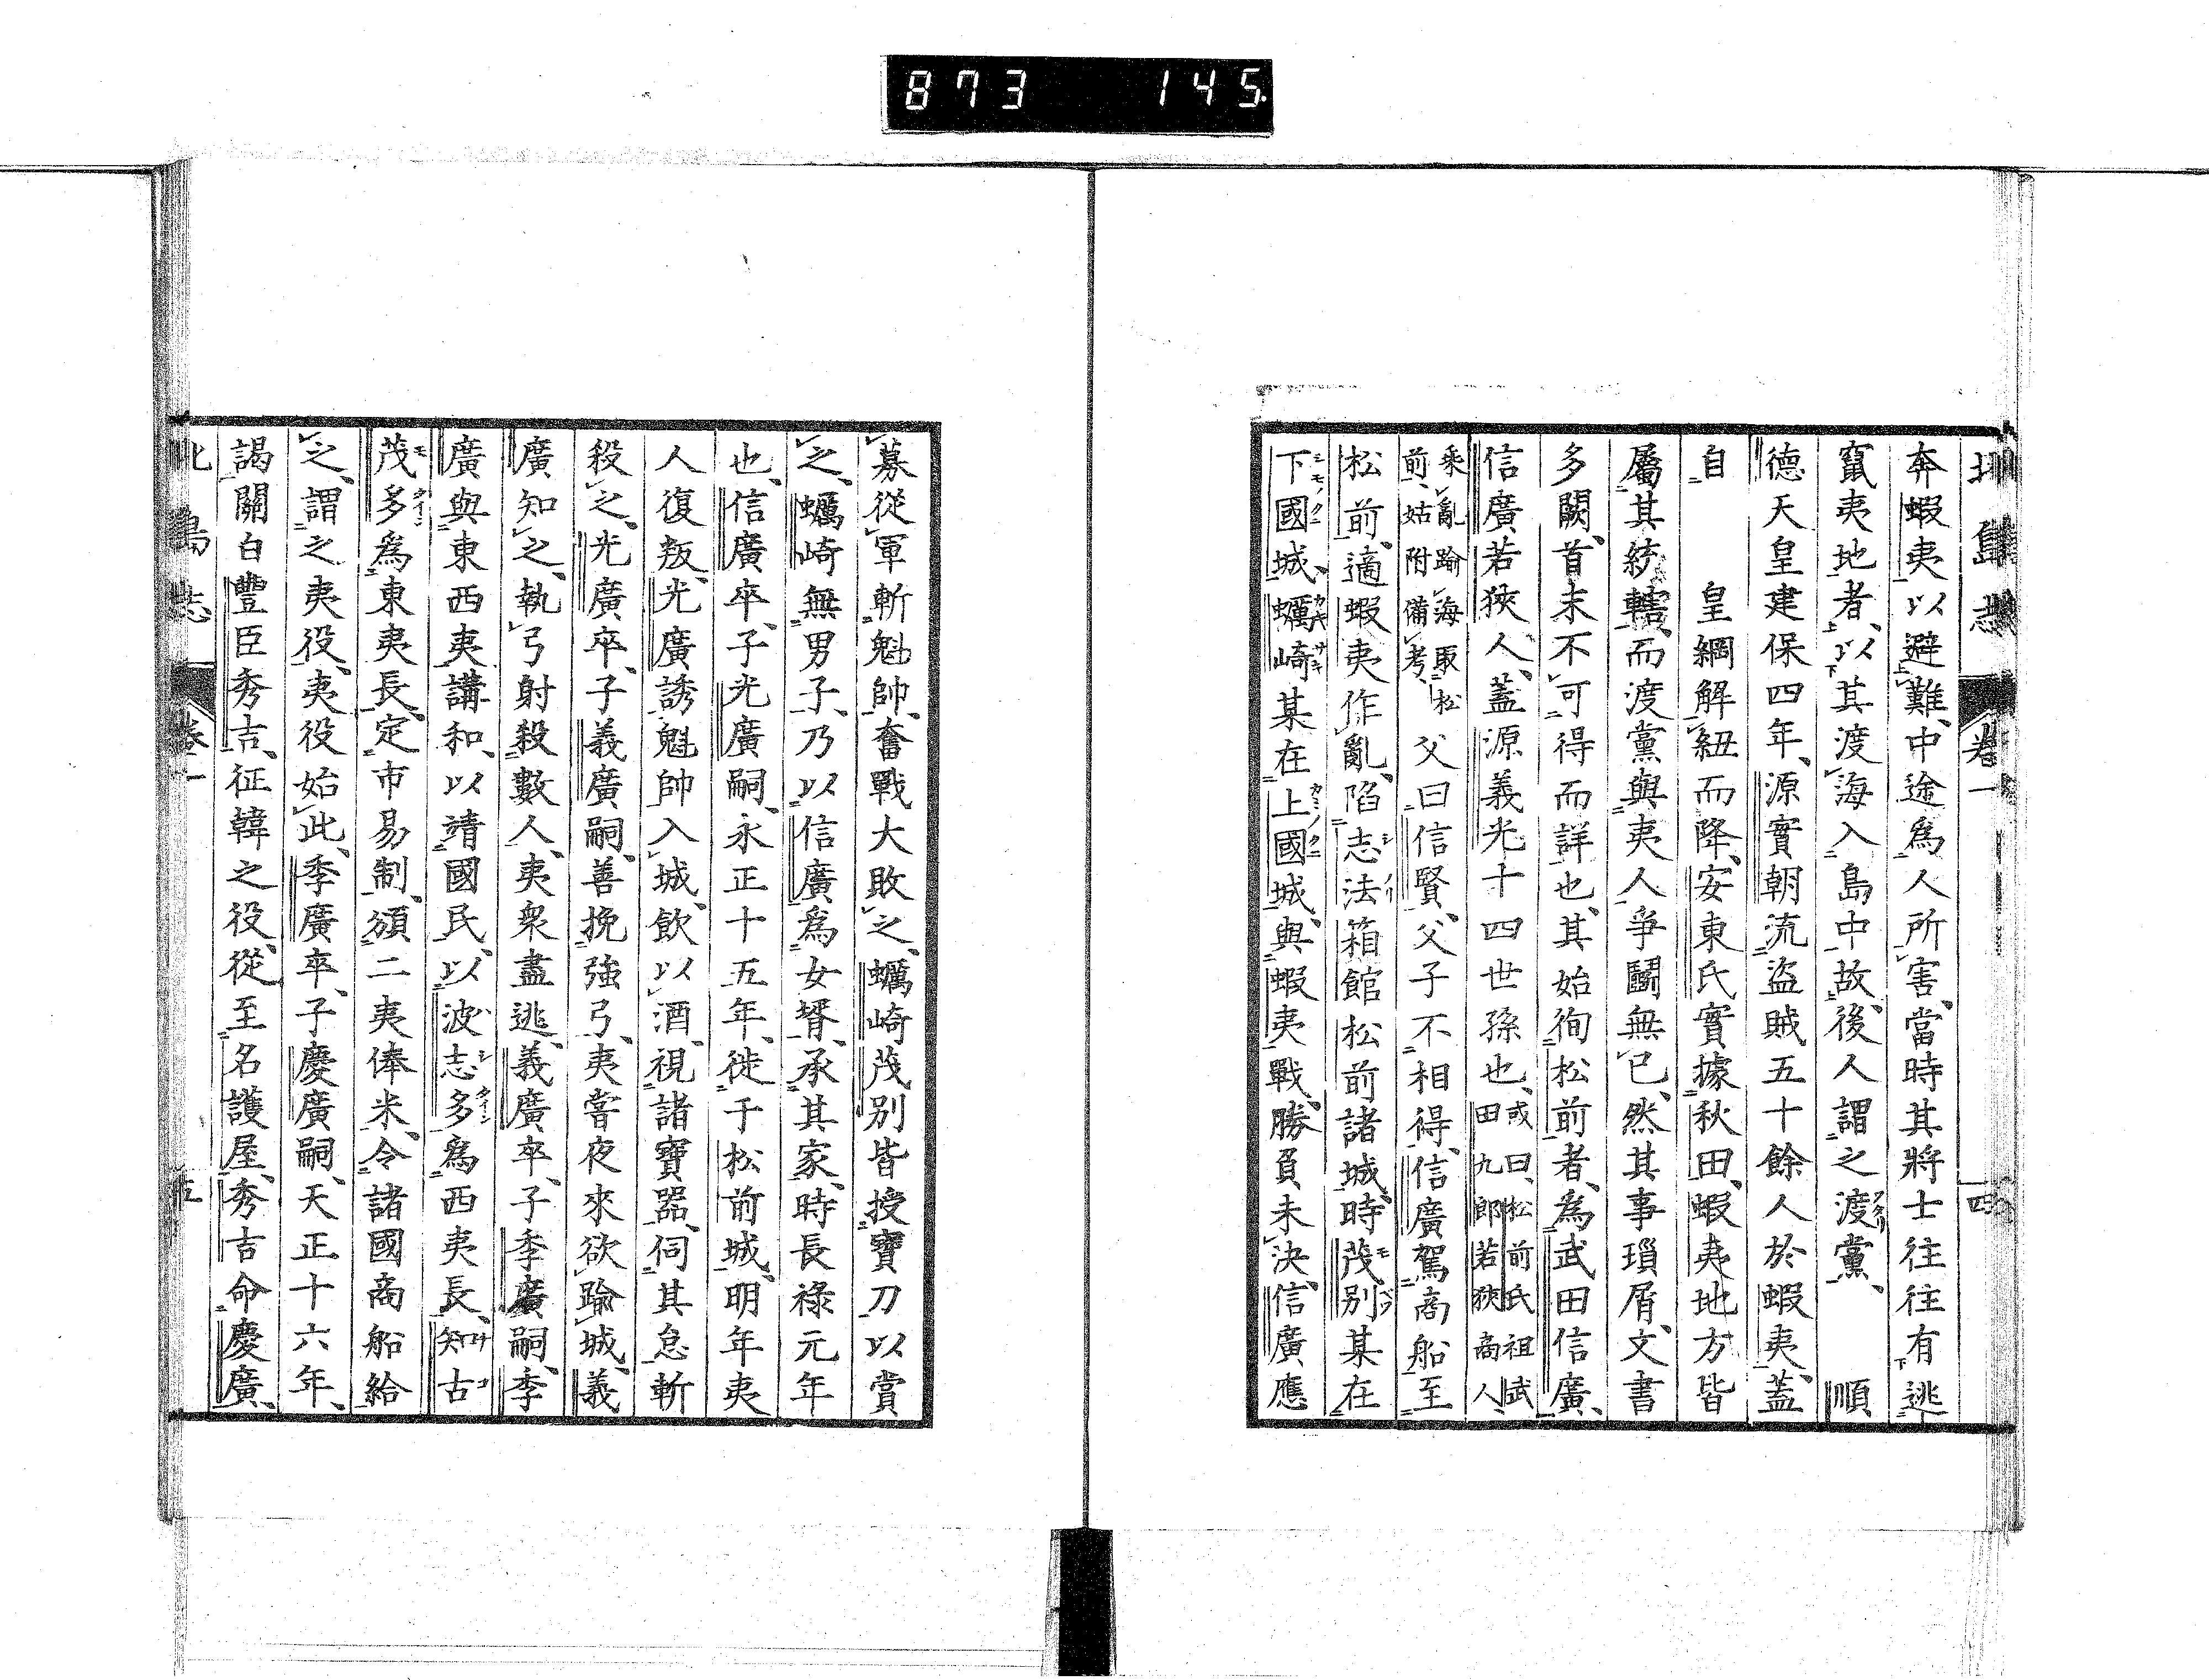 873 145
北島志 卷一 四
奔蝦夷以避難、中途爲人所害、當時其將士往往有逃
竄夷地者、以其渡海入島中故、後人謂之渡黨、 順
德天皇建保四年、源實朝流盜賊五十餘人於蝦夷、蓋
自 皇綱解紐而降、安東氏實據秋田、蝦夷地方皆
屬其統轄、而渡黨與夷人爭鬭無已、然其事瑣屑、文書
多闕、首末不可得而詳也、其始徇松前者、爲武田信廣、
信廣若狹人、蓋源義光十四世孫也、或曰、松前氏祖武
田九郎若狹商人、
乘亂踰海取松
前、姑附備考、
父曰信賢、父子不相得、信廣駕商船至
松前、適蝦夷作亂、陷志法箱館松前諸城、時茂別某在
下國城、蠣崎某在上國城、與蝦夷戰、勝負未決、信廣應
募從軍斬魁帥、奮戰大敗之、蠣崎茂別皆授寶刀以賞
之、蠣崎無男子、乃以信廣爲女壻、承其家、時長祿元年
也、信廣卒、子光廣嗣、永正十五年、徙于松前城、明年夷
人復叛、光廣誘魁帥入城、飲以酒、視諸寶器、伺其怠斬
殺之、光廣卒、子義廣嗣、善挽強弓、夷嘗夜來欲踰城、義
廣知之、執弓射殺數人、夷衆盡逃、義廣卒、子季廣嗣、季
廣與東西夷講和、以靖國民、以波志多爲西夷長、知古
茂多爲東夷長、定市易制、頒二夷俸米、令諸國商船給
之、謂之夷役、夷役始此、季廣卒、子慶廣嗣、天正十六年、
謁關白豐臣秀吉、征韓之役、從至名護屋、秀吉命慶廣、
北島志 卷一 五